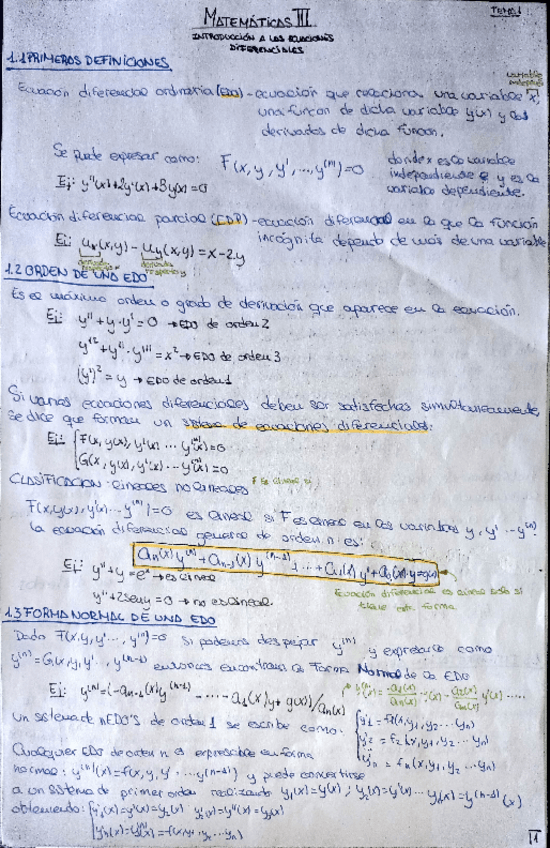 MATEMÁTICAS III
Tema 1
INTRODUCCIÓN A LAS ECUACIONES
DIFERENCIALES
1.1 PRIMERAS DEFINICIONES
Ecuación diferencial ordinaria (EDO) - ecuación que relaciona una variable x,
una función de dicha variable y(x) y las
derivadas de dicha función.
Se puede expresar como: F(x, y, y', ..., y^(n))=0 donde x es la variable
independiente e y es la
variable dependiente.
Ej: y''(x)+2y'(x)+3y(x)=0
Ecuación diferencial parcial (EDP) - ecuación diferencial en la que la función
incógnita depende de más de una variable
Ej: u_x(x,y) - u_y(x,y) = x-2y
1.2 ORDEN DE UNA EDO
Es el máximo orden o grado de derivación que aparece en la ecuación.
Ej: y''+y·y'=0 → EDO de orden 2
y'^2+y''·y'''=x^2 → EDO de orden 3
(y')^2=y → EDO de orden 1
Si varias ecuaciones diferenciales deben ser satisfechas simultáneamente,
se dice que forman un sistema de ecuaciones diferenciales.
Ej: { F(x, y(x), y'(x) ... y^(n))=0
G(x, y(x), y'(x) ... y^(n))=0
CLASIFICACIÓN - lineales no lineales
F(x,y(x), y'(x) ... y^(n))=0 es lineal si F es lineal en las variables y, y' ... y^(n)
La ecuación diferencial general de orden n es:
a_n(x) y^(n)+a_n-1(x) y^(n-1)+ ... +a_1(x) y'+a_0(x)·y=g(x)
Ej: y''+y=e^x → es lineal
y''+2seny=0 → no es lineal.
Ecuación diferencial es lineal solo si
tiene esta forma
1.3 FORMA NORMAL DE UNA EDO
Dada F(x,y,y' ..., y^(n))=0 si podemos despejar y^(n) y expresarlo como
y^(n)=G(x,y,y', ..., y^(n-1)) entonces encontramos la Forma Normal de la EDO
Ej: y^(n)=(-a_n-1(x)y^(n-1) - ... - a_1(x)y'+g(x))/a_n(x)
Un sistema de n EDO'S de orden 1 se escribe como: { y'1 = f1(x,y1,y2 ... yn)
y'2 = f2(x,y1,y2 ... yn)
y'n = fn(x,y1,y2 ... yn)
Cualquier EDO de orden n es expresable en forma
normal: y^(n)(x)=f(x,y,y' ... y^(n-1)) y puede convertirse
a un sistema de primer orden realizando y1(x)=y(x); y2(x)=y'(x) ... yn(x)=y^(n-1)(x)
obteniendo: { y'1(x)=y'(x)=y2(x) y'2(x)=y''(x)=y3(x)
y'n(x)=y^(n)(x)=f(x,y1,y2 ... yn)
1